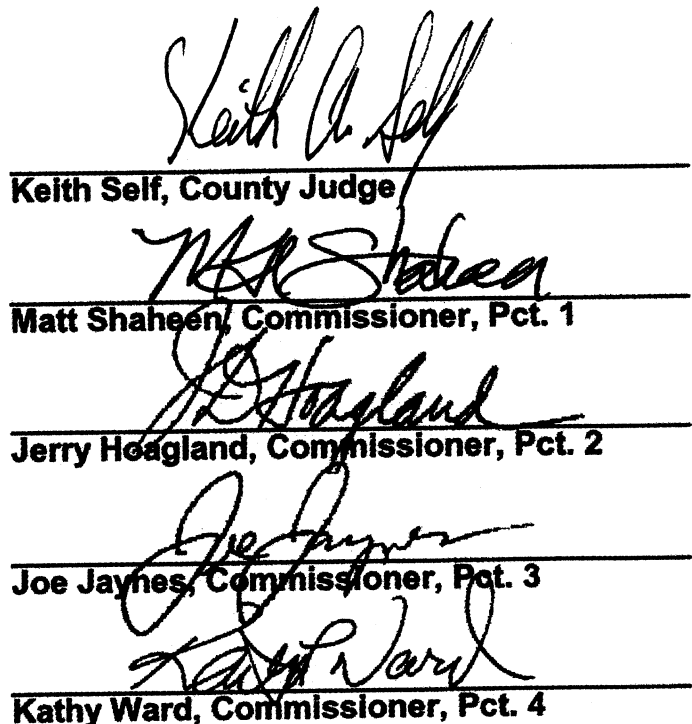 Keith A. Self
Keith Self, County Judge
Matt Shaheen
Matt Shaheen, Commissioner, Pct. 1
JD Hoagland
Jerry Hoagland, Commissioner, Pct. 2
Joe Jaynes
Joe Jaynes, Commissioner, Pct. 3
Kathy Ward
Kathy Ward, Commissioner, Pct. 4